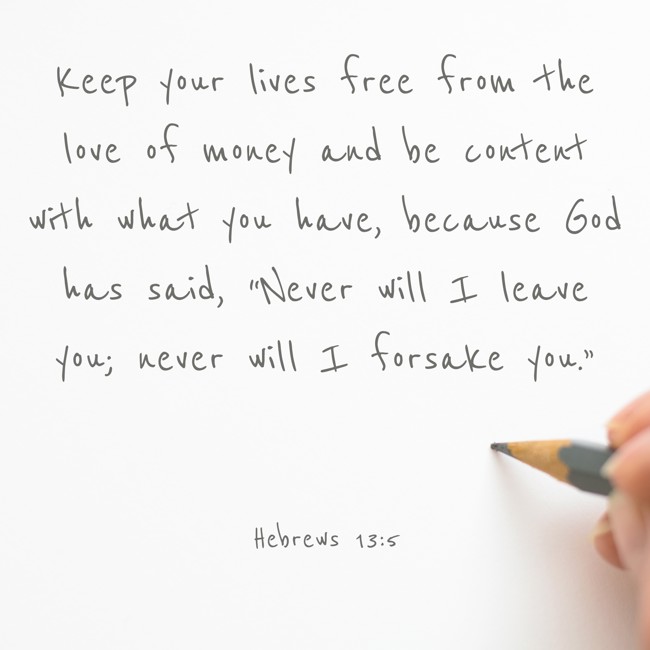 Keep your lives free from the
love of money and be content
with what you have, because God
has said, "Never will I leave
you; never will I forsake you."
Hebrews 13:5